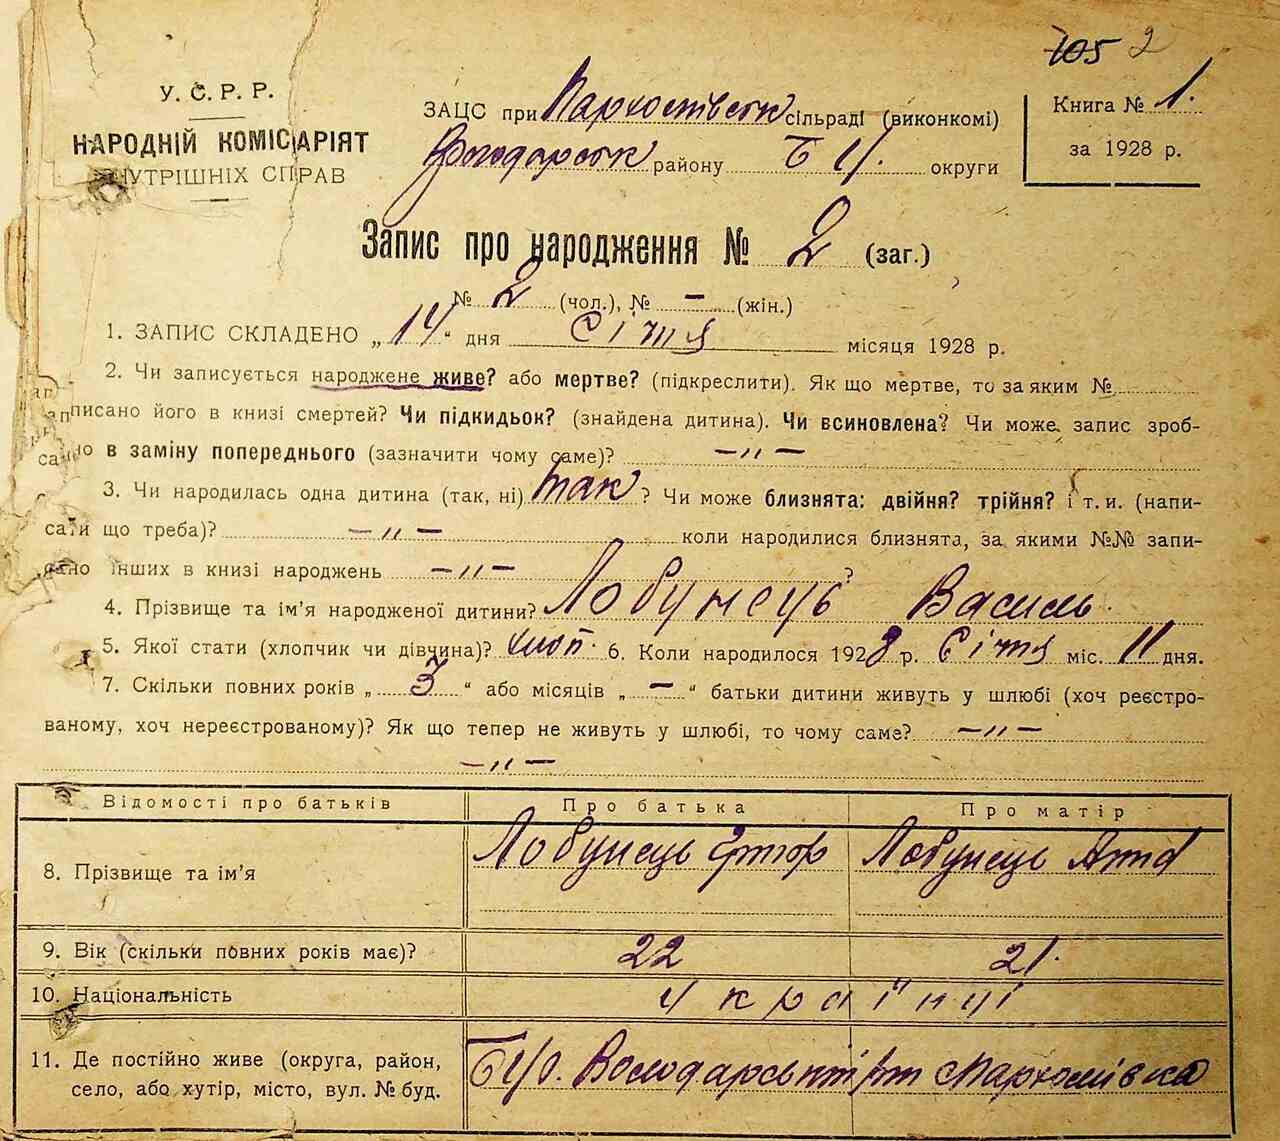 105 2
У. С. Р. Р.
НАРОДНІЙ КОМІСАРІЯТ
ВНУТРІШНІХ СПРАВ
ЗАЦС при сільраді (виконкомі)
району Б Ц. округи
Книга № 1.
за 1928 р.
Запис про народження № 2 (заг.)
№ 2 (чол.), № – (жін.)
1. ЗАПИС СКЛАДЕНО „ 14 “ дня Січня місяця 1928 р.
2. Чи записується народжене живе? або мертве? (підкреслити). Як що мертве, то за яким №
записано його в книзі смертей? Чи підкидьок? (знайдена дитина). Чи всиновлена? Чи може запис зроб-
в заміну попереднього (зазначити чому саме)? – „ –
3. Чи народилась одна дитина (так, ні) так ? Чи може близнята: двійня? трійня? і т. и. (напи-
сати що треба)? – „ – коли народилися близнята, за якими №№ запи-
сано інших в книзі народжень – „ – ?
4. Прізвище та ім’я народженої дитини? Лобунець Василь.
5. Якої стати (хлопчик чи дівчина)? хлоп. 6. Коли народилося 1928 р. Січня міс. 11 дня.
7. Скільки повних років „ 3 “ або місяців „ – “ батьки дитини живуть у шлюбі (хоч реєстро-
ваному, хоч нереєстрованому)? Як що тепер не живуть у шлюбі, то чому саме? – „ –
– „ –
Відомості про батьків Про батька Про матір
8. Прізвище та ім’я Лобунець Лобунець
9. Вік (скільки повних років має)? 22 21.
10. Національність українці
11. Де постійно живе (округа, район,
село, або хутір, місто, вул. № буд. БЦо. Володарський